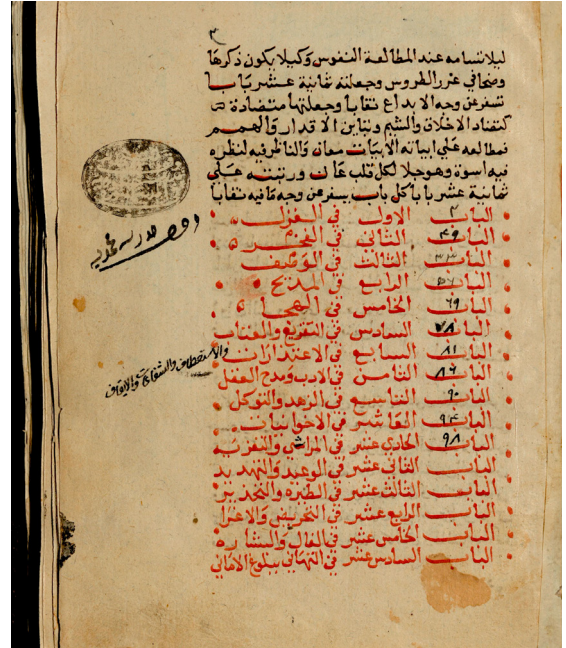 ٣
ليلا تسامه عند المطالعة النفوس وكيلا يكون ذكرها
وضحا في غرر الطروس وجعلته ثمانية عشر بابا
تسفر عن وجه الابداع نقابا وجعلتها متضادة
كتضاد الاخلاق والشيم وتباين الاقدار والهمم
فمطالعه على ابياته الابيات معان والناظر فيه لنظره
فيه اسوة وهو جلا لكل قلب عان ورتبته على
ثمانية عشر بابا كل باب يسفر عن وجه مافيه نقابا
الباب الاول في الغزل ٣
الباب الثاني في الفخر ٤٩
الباب الثالث في التوصيف
الباب الرابع في المديح
الباب الخامس في الهجا ٦٩
الباب السادس في التقريع والعتاب ٧٨
الباب السابع في الاعتذارات ٨١
والاستعطاف والشفاعات
الباب الثامن في الادب ومدح العقل ٨٦
الباب التاسع في الزهد والتوكل ٩٠
الباب العاشر في الاخوانيات ٩٤
الباب الحادي عشر في المراثي والتعزيه ٩٨
الباب الثاني عشر في الوعيد والتهديد
الباب الثالث عشر في الطيره والتحذير
الباب الرابع عشر في التحريض والاغرا
الباب الخامس عشر في الفال والبشاره
الباب السادس عشر في التهاني ببلوغ الاماني